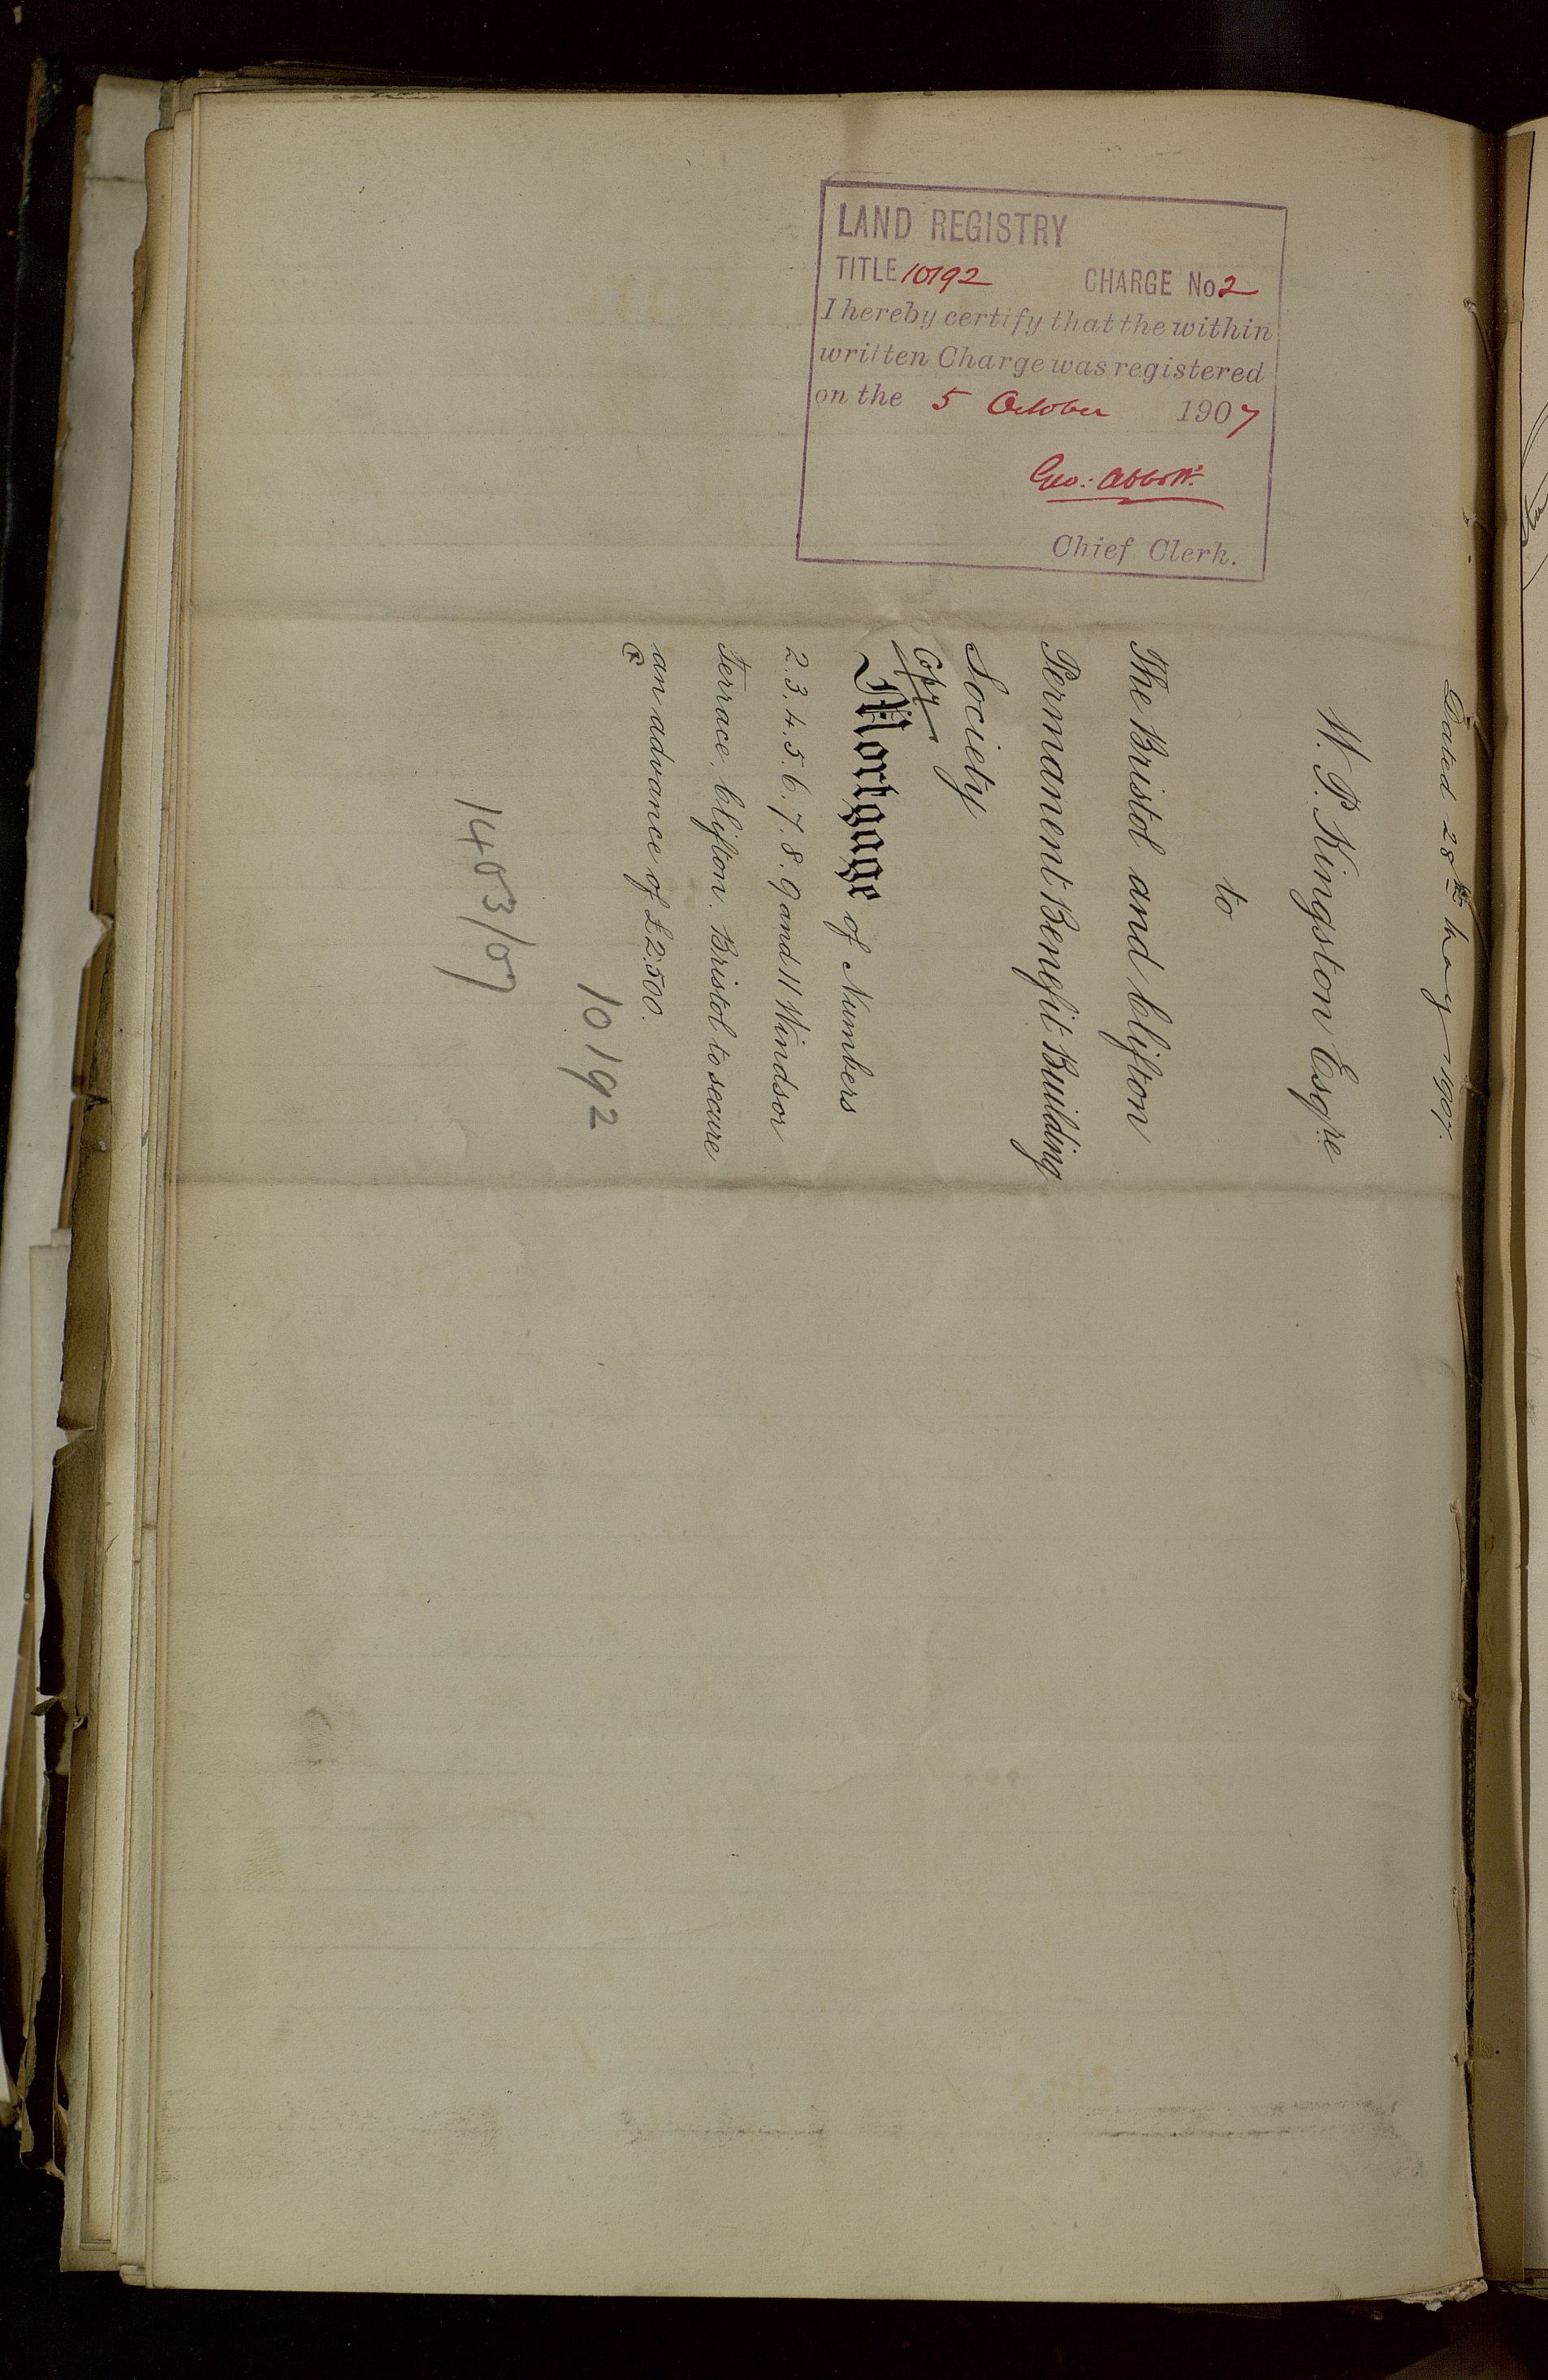 LAND REGISTRY
TITLE 10192 CHARGE No 2
I hereby certify that the within
written Charge was registered
on the 5 October 1907
Geo: Abbott
Chief Clerk.
Dated 28th May 1907.
W. P. Kingston Esqre
to
The Bristol and Clifton
Permanent Benefit Building
Society
Copy
Mortgage of Numbers
2. 3. 4. 5. 6. 7. 8. 9 and 11 Windsor
Terrace, Clifton. Bristol to secure
an advance of £2500.
10192
1403/07